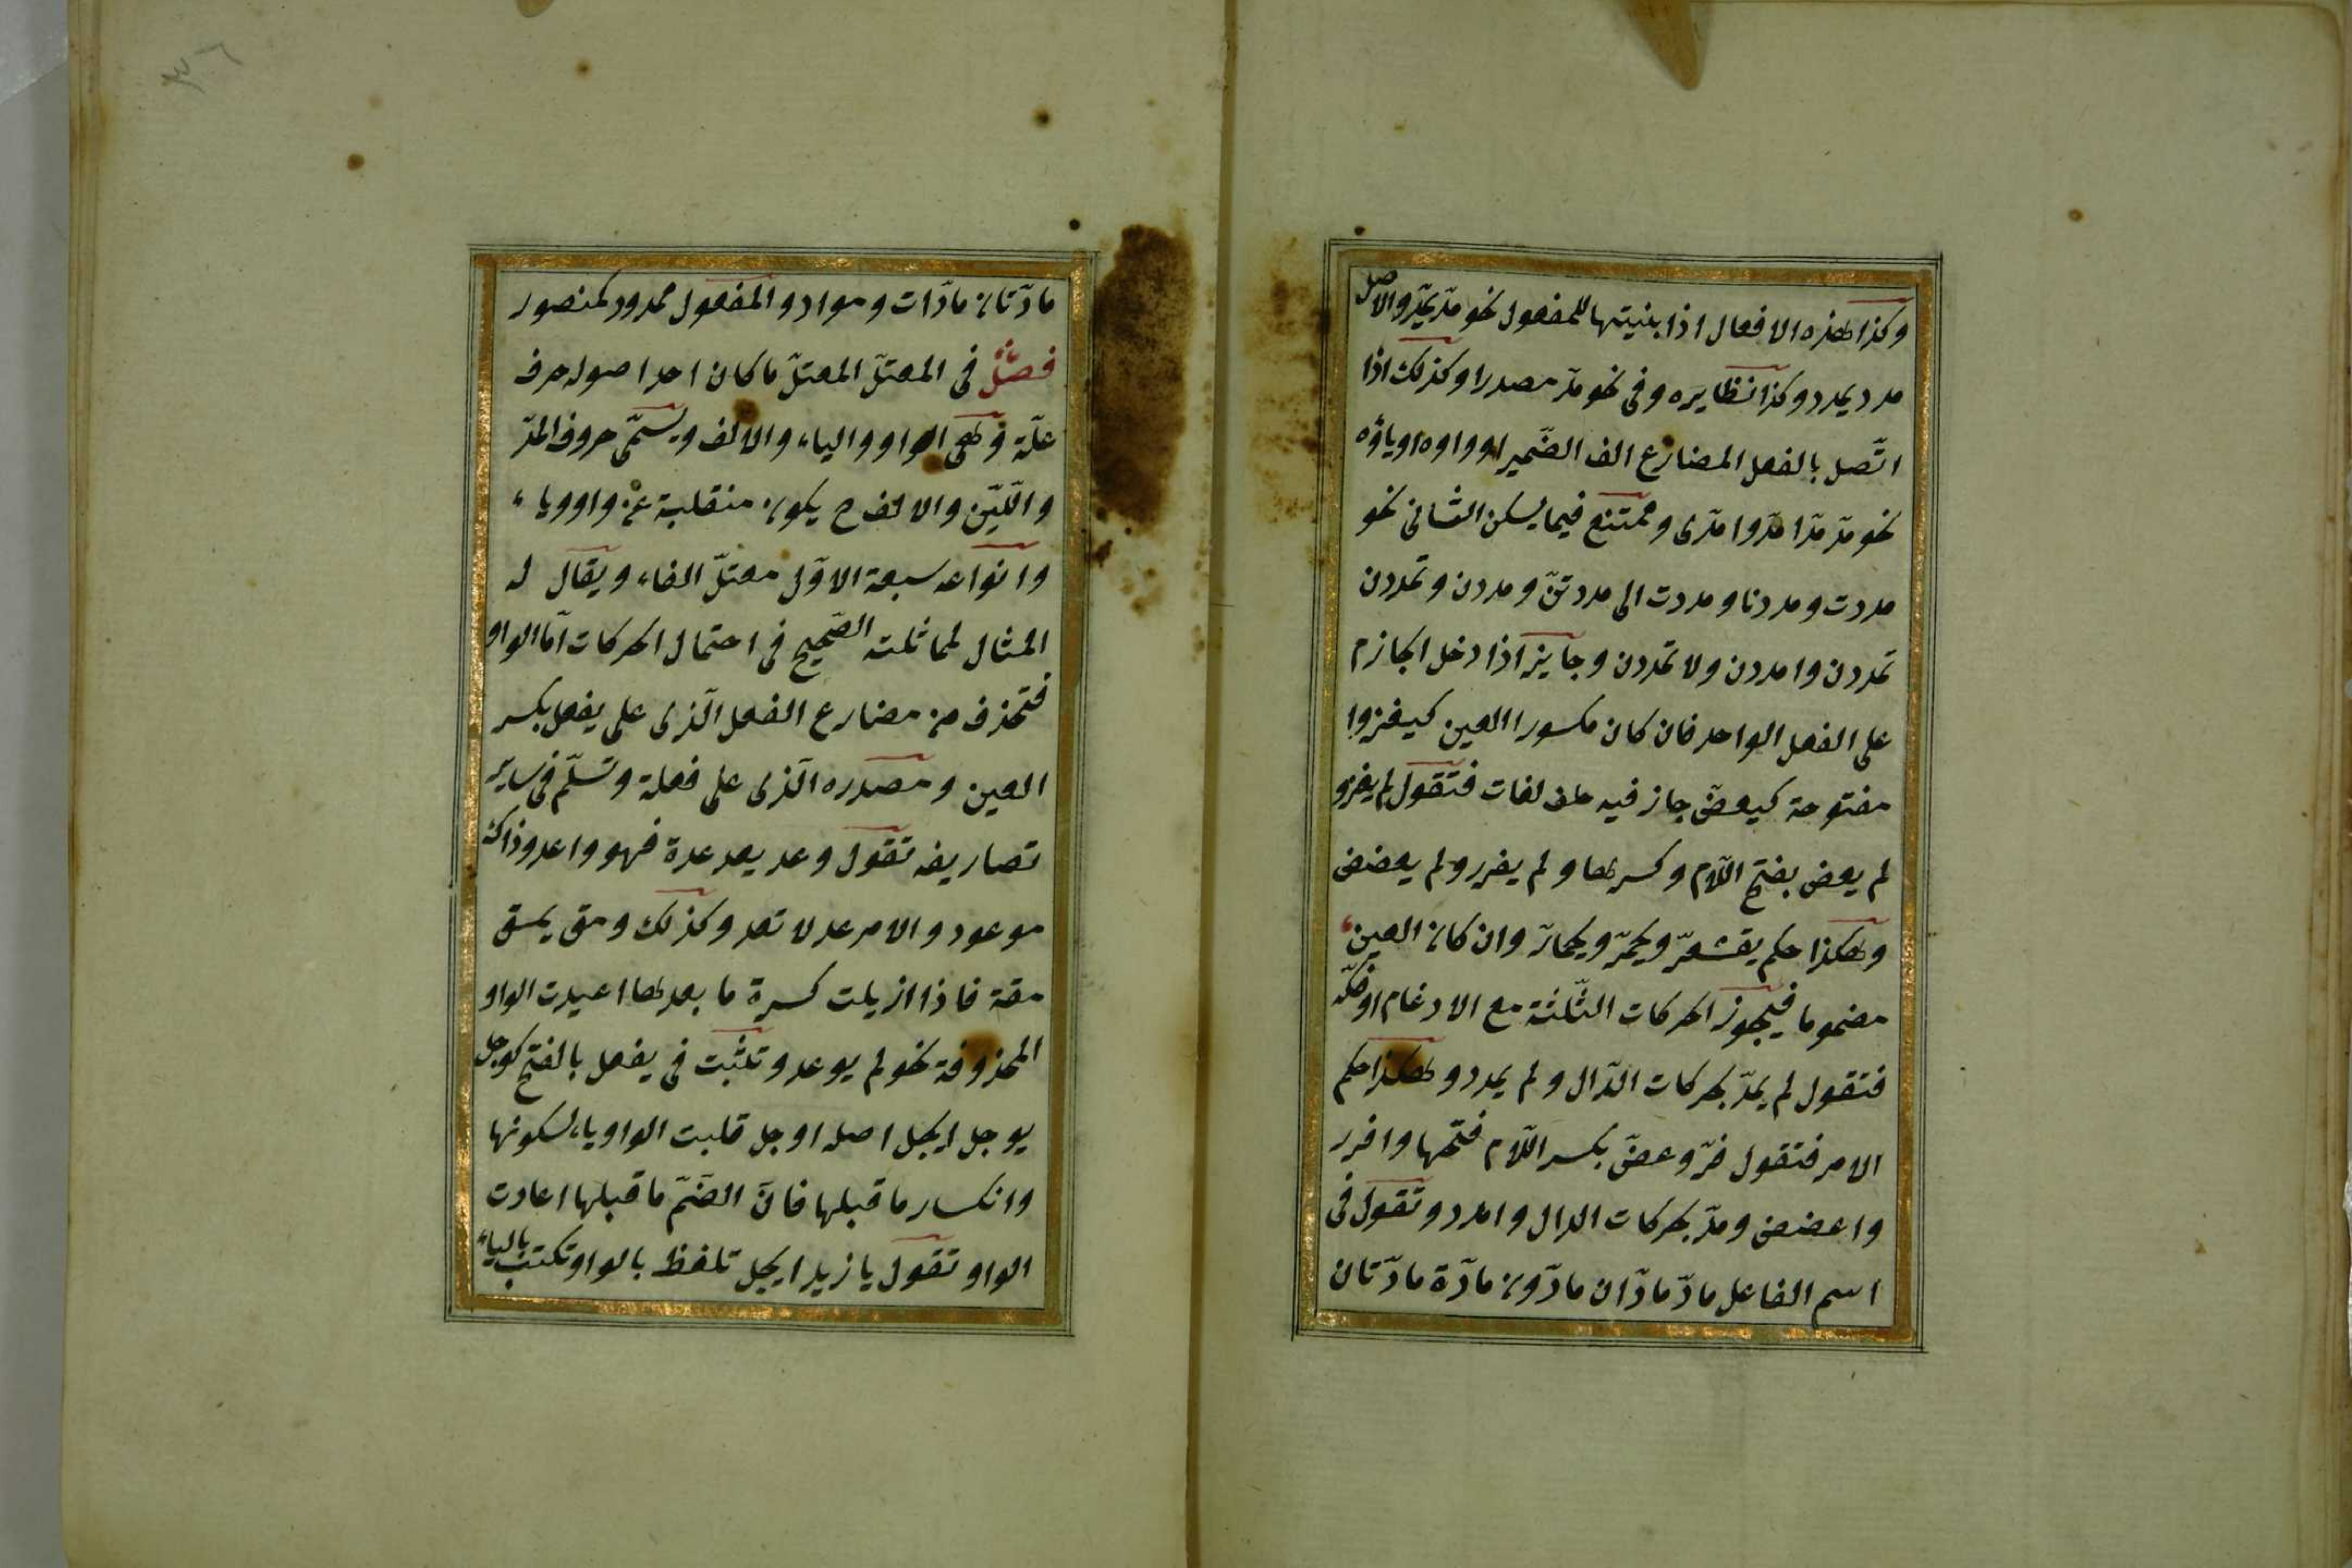 وكذا هذه الافعال اذا بنيتها للمفعول نحو مدّ يمدّ والاصل
مدد يمدد وكذا نظايره وفى نحو مدّ مصدرا وكذلك اذا
اتّصل بالفعل المضارع الف الضّمير او واوه او ياؤه
نحو مدّ مدّا مدّوا مدّى وممتنع فيما يسكن الثانى نحو
مددت ومددنا ومددت الى مددتنّ ومددن وتمددن
تمددن وامددن ولا تمددن وجايز اذا دخل الجازم
على الفعل الواحد فان كان مكسورا العين كيفر او
مفتوحة كيعضّ جاز فيه لغات فتقول لم يفر و
لم يعض بفتح اللّام وكسرها ولم يفرر ولم يعضض
وهكذا حكم يقشعرّ ويحمرّ ويحمارّ وان كان العين
مضموما فيجوز الحركات الثّلثة مع الادغام او فكّه
فتقول لم يمدّ بحركات الدّال ولم يمدد وهكذا حكم
الامر فتقول فرّ وعضّ بكسر اللّام فتحها وافرر
واعضض ومدّ بحركات الدال وامدد وتقول فى
اسم الفاعل مادّ مادّان مادّون مادّة مادّتان
مادّتان مادّات ومواد والمفعول ممدود كمنصور
فصل فى المعتلّ المعتلّ ما كان احد اصوله حرف
علّة وهى الواو والياء والالف ويسمّى حروف المدّ
واللّيّن والالف ح يكون منقلبة عن واو وياء
وانواعه سبعة الاوّل معتلّ الفاء ويقال له
المثال لمماثلته الصّحيح فى احتمال الحركات امّا الواو
فتحذف من مضارع الفعل الّذى على يفعل بكسر
العين ومصدره الّذى على فعلة وتسلّم فى ساير
تصاريفه تقول وعد يعد عدة فهو واعد وذاك
موعود والامر عد لا تعد وكذلك ومق يمق
مقة فاذا ازيلت كسرة ما بعدها اعيدت الواو
المحذوفة نحو لم يوعد وتثبت فى يفعل بالفتح كوجل
يوجل ايجل اصله اوجل قلبت الواو ياء لسكونها
وانكسار ما قبلها فانّ الضّمّ ما قبلها اعادت
الواو تقول يا زيد ايجل تلفظ بالواو وتكتب بالياء